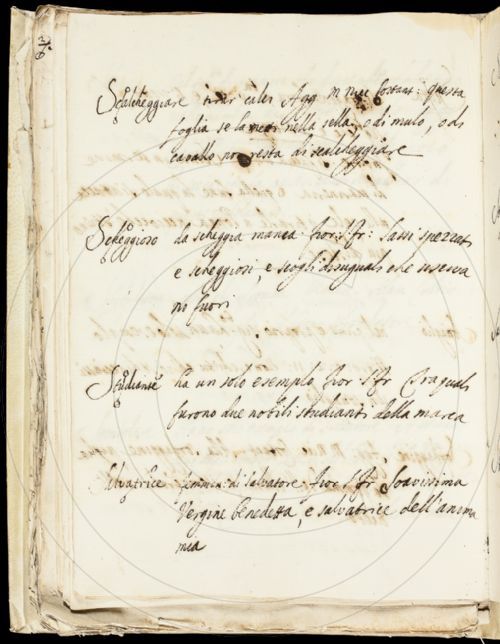 Scalcheggiare tirar calci Agg m mac fortunat: questa
foglia se la metti nella sella, o di mulo, o di
cavallo non resta di scalcheggiare
Scheggioso da scheggia manca. Fior: S. Fr: sassi spezzati
e scheggiosi, e scogli disuguali che uscivano
ni fuori
Studiante ha un solo esempio Fior S. Fr Tra quali
furono due nobili studianti della marca
Salvatrice femmin: di Salvatore. Fior S. Fr. Soavissima
Vergine benedetta, e salvatrice dell'anima
mia